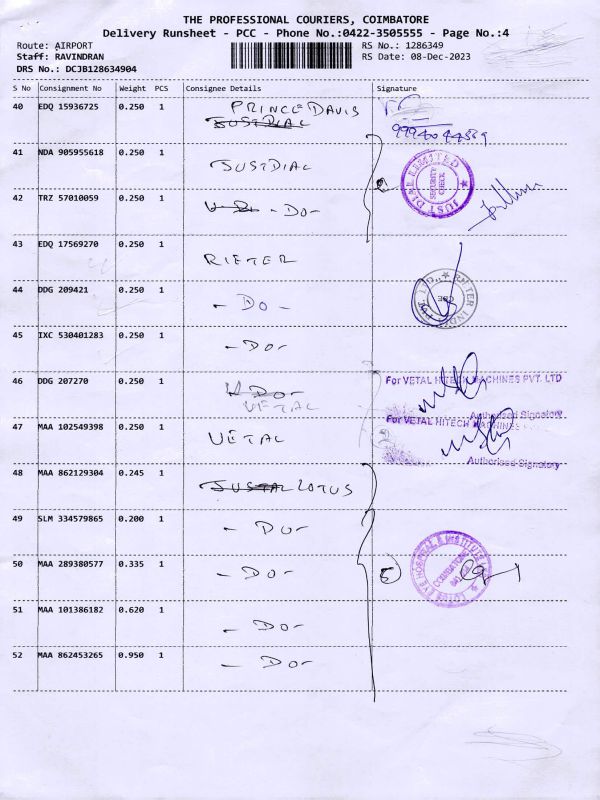 THE PROFESSIONAL COURIERS, COIMBATORE
Delivery Runsheet - PCC - Phone No.:0422-3505555 - Page No.:4
Route: AIRPORT
RS No.: 1286349
Staff: RAVINDRAN
RS Date: 08-Dec-2023
DRS No.: DCJB128634904
S No Consignment No Weight PCS Consignee Details Signature
40 EDQ 15936725 0.250 1 PRINCE DAVIS
JUSTDIAL
41 NDA 905955618 0.250 1 JUSTDIAL
JUST DIAL LIMITED
SECURITY CHECK
42 TRZ 57010059 0.250 1 - DO -
43 EDQ 17569270 0.250 1 RIETER
44 DDG 209421 0.250 1 - DO -
45 IXC 530401283 0.250 1 - DO -
46 DDG 207270 0.250 1 - DO -
VETAL
For VETAL HITECH MACHINES PVT. LTD
Authorised Signatory
47 MAA 102549398 0.250 1 VETAL
For VETAL HITECH MACHINES
Authorised Signatory
48 MAA 862129304 0.245 1 LOTUS
49 SLM 334579865 0.200 1 - DO -
50 MAA 289380577 0.335 1 - DO -
5
LOTUS EYE HOSPITAL & INSTITUTE
COIMBATORE
51 MAA 101386182 0.620 1 - DO -
52 MAA 862453265 0.950 1 - DO -